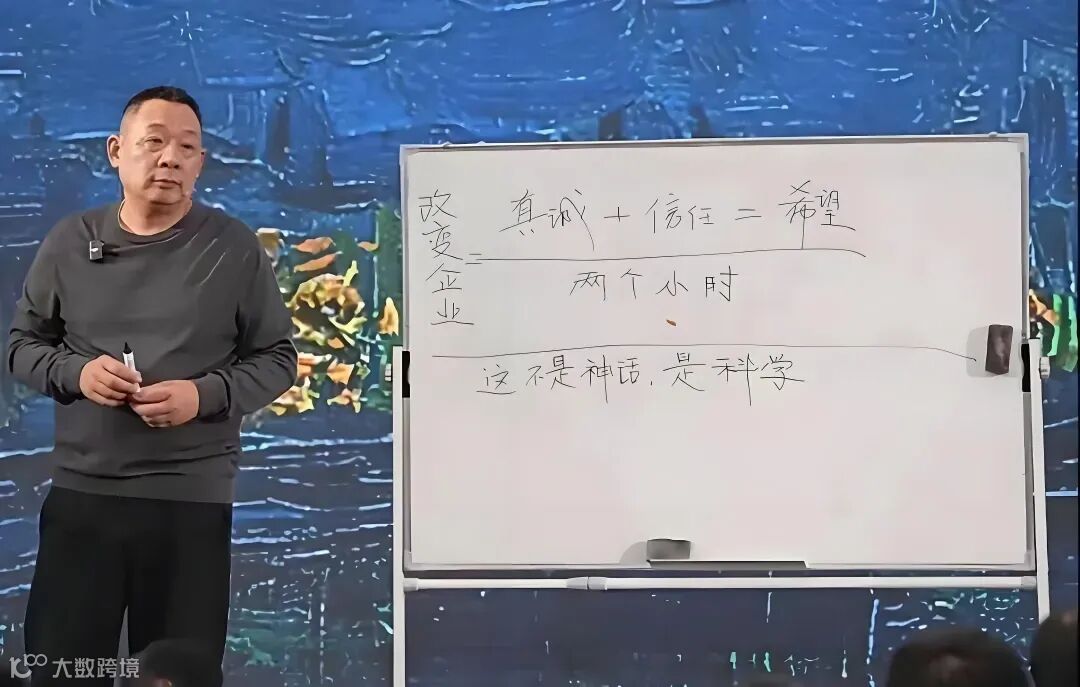 改变企业 = 真诚 + 信任 = 希望
两个小时
这不是神话，是科学
大数跨境